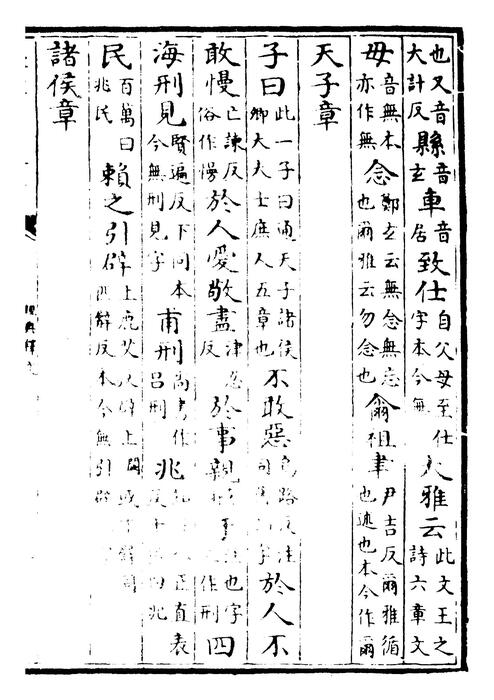 也又音大計反縣音玄車音居致仕自父母至仕字本今無大雅云此文王之詩六章文
毋音無本亦作無念鄭玄云無念無忘也爾雅云勿念也爾祖聿尹吉反爾雅循也述也本今作爾
天子章
子曰此一子曰通天子諸侯卿大夫士庶人五章也不敢惡烏路反注於人不
敢慢亡諫反俗作慢於人愛敬盡津忍反於事親也字作刑四
海刑見賢遍反下同本今無刑見字甫刑尚書作呂刑兆正直表兆
民百萬曰兆民賴之引辟上反本今無引辟
諸侯章
經典釋文